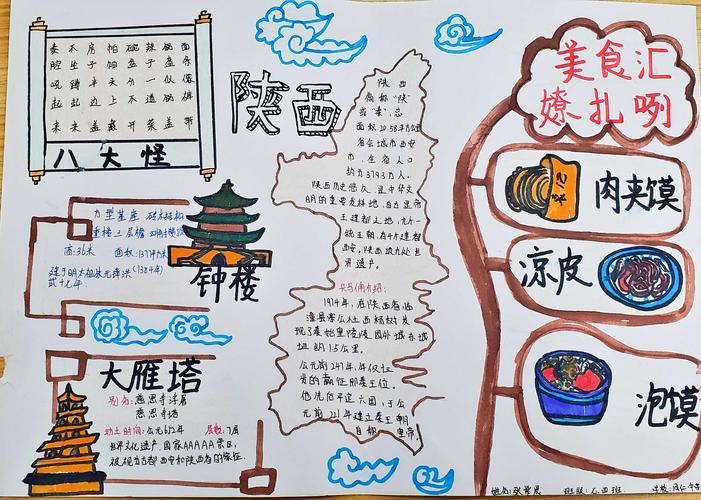 秦 不 房 帕 碗 辣 锅 面
腔 坐 子 帕 盆 子 盔 条
吼 蹲 半 头 分 一 似 像
起 起 边 上 不 道 锅 裤
来 来 盖 戴 开 菜 盖 带
八大怪
陕西
陕西
简称"陕"
或"秦",总
面积20.58平方公里
省会城市西安
市,全省人口
约为3793万人
陕西历史悠久,是中华文
明的重要发祥地,自古是帝
王建都之地,九个一
统王朝,有4个建都
西安,陕西成六处世
界遗产。
兵马俑介绍:
1974年,在陕西省临
潼县晏寨公社西杨村发
现了秦始皇陵陵园外城东城
垣约1.5公里。
公元前247年,年仅13
岁的嬴政即秦王位。
他先后平定六国,于公
元前221年建立秦王朝
自称 皇帝。
美食汇
嫽扎咧
肉夹馍
凉皮
泡馍
方型基座 砖木结构
重楼三层檐 四角攒顶
高:36米 面积:1377平方米
建于明太祖朱元璋洪(1384年)
武十七年
钟楼
大雁塔
别名:慈恩寺浮屠
慈恩寺塔
动土时间:公元652年 层数:7层
世界文化遗产,国家AAAAA景区,
被视为古都西安和陕西省的象征。
班级:六.四班